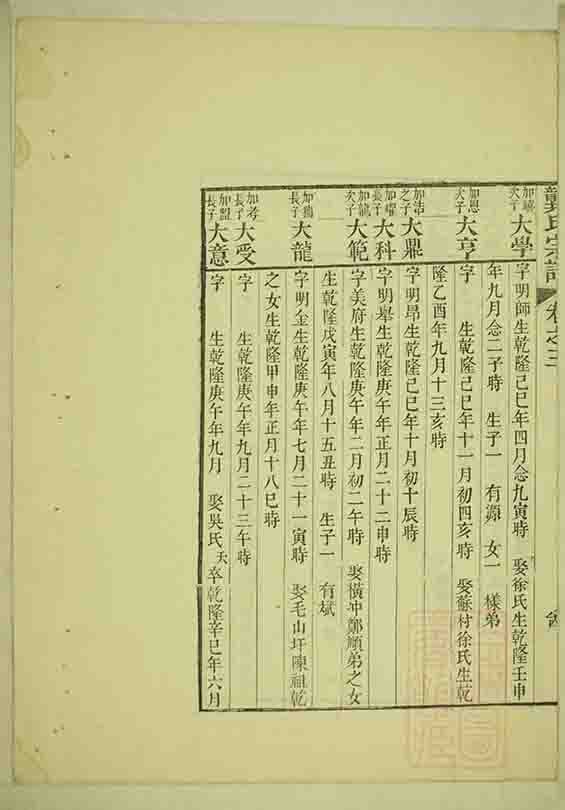 龔氏宗譜 卷之三
次子 大學 字明師生乾隆己巳年四月念九寅時 娶徐氏生乾隆壬申
年九月念二子時 生子一 有源 女一 樣弟
加恩次子 大亨 字 生乾隆己巳年十一月初四亥時 娶蘇村徐氏生乾
隆乙酉年九月十三亥時
加浩之子 大鼎 字明昂生乾隆己巳年十月初十辰時
加曜長子 大科 字明舉生乾隆庚午年正月二十二申時
加龍次子 大範 字美府生乾隆庚午年二月初二午時 娶橫冲鄭順弟之女
生乾隆戊寅年八月十五丑時 生子一 有斌
長子 大龍 字明金生乾隆庚午年七月二十一寅時 娶毛山圩陳祖乾
之女生乾隆甲申年正月十八巳時
加孝長子 大受 字 生乾隆庚午年九月二十三午時
加盟長子 大意 字 生乾隆庚午年九月 娶吳氏 夭卒乾隆辛巳年六月